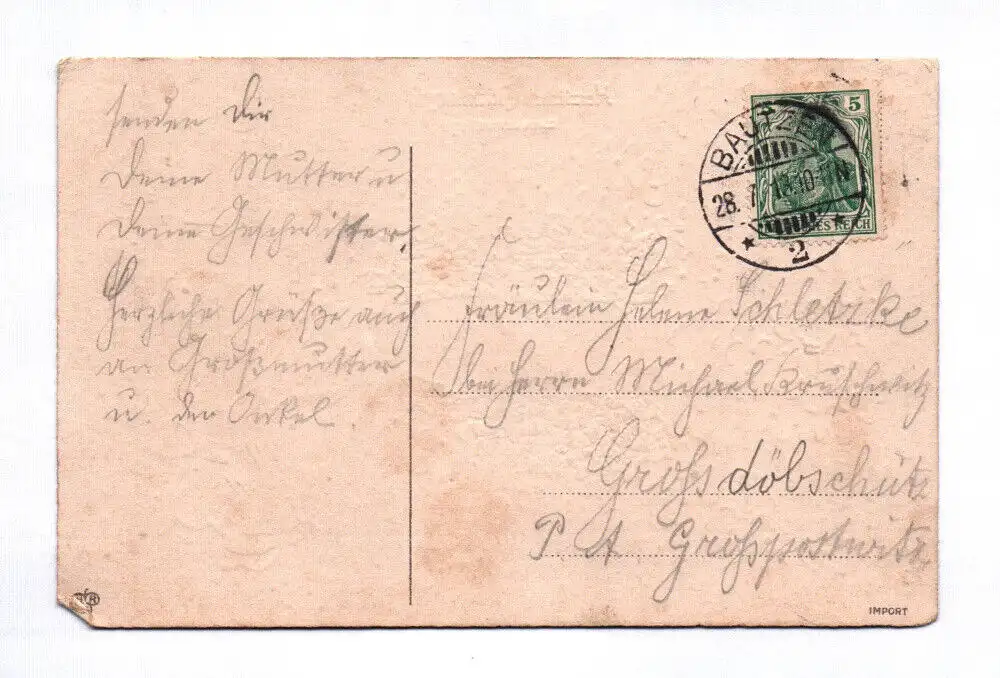 senden Dir
Deine Mutter u
Deine Geschwister.
Herzliche Grüße auch
an Großmutter
u. der Onkel.
BAUTZEN
28. 7.
10-11N
2
5
ES REICH
Fräulein Helene Schletzke
bei Herrn Michael Kruschwitz
Grossdöbschütz
P. A. Grosspostwitz
IMPORT